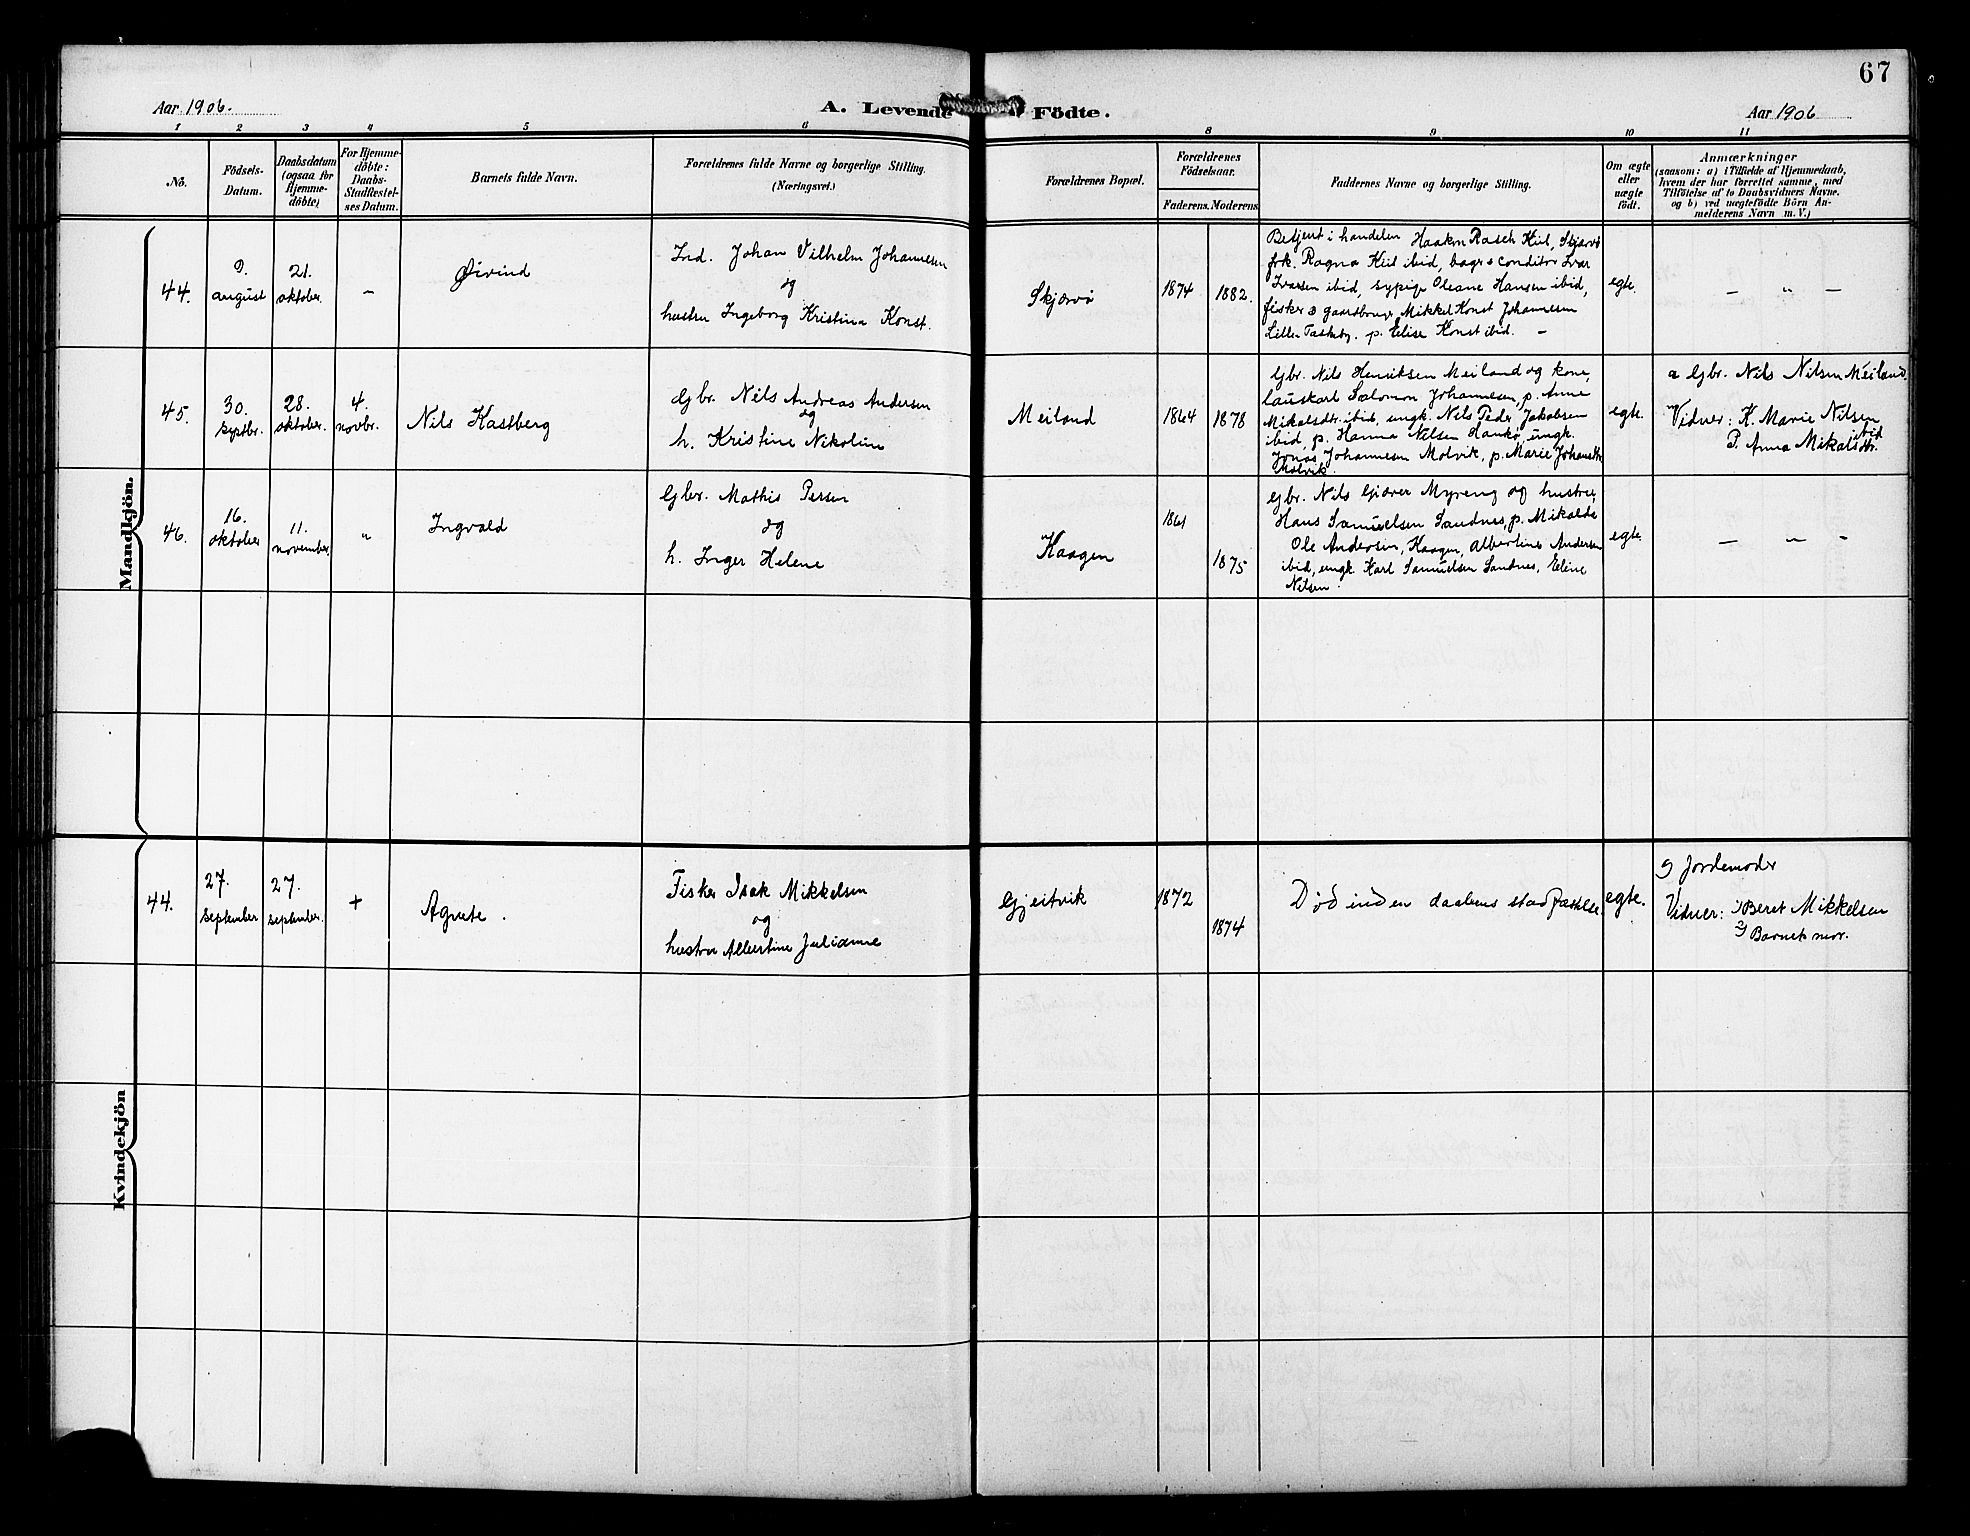 67
Aar 1906.
A. Levende Födte.
Aar 1906
1 2 3 4 5 6 8 9 10 11
No.
Födsels-
Datum.
Daabsdatum
(ogsaa for
Hjemme-
döbte)
For Hjemme-
döbte:
Daabs-
Stadfæstel-
ses Datum.
Barnets fulde Navn.
Forældrenes fulde Navne og borgerlige Stilling.
(Næringsvei.)
Forældrenes Bopæl.
Forældrenes
Födselsaar.
Faderens.
Moderens
Faddernes Navne og borgerlige Stilling.
Om ægte
eller
uægte
födt.
Anmærkninger
(saasom: a) i Tilfælde af Hjemmedaab,
hvem der har forrettet samme, med
Tilföielse af to Daabsvidners Navne.
og b) ved uægtefödte Börn An-
melderens Navn m. V.)
Mandkjön.
44.
9.
august
21.
oktober.
–
Øivind
Ind. Johan Vilhelm Johannesen
og
hustru Ingeborg Kristina Konst.
Skjærvø
1874
1882.
Betjent i handelen Haakon Rasch Kiil, Skjærvø
frk. Ragna Kiil ibid, bager & conditor Ivar
Ivarsen ibid, sypige Oleane Hansen ibid,
fisker & gaardbruger Mikkel Konst Johannesen
Lille Taskeby. p. Elise Konst ibid. –
egte.
– " –
45.
30.
septbr.
28.
oktober.
4.
novbr.
Nils Kastberg
Gbr. Nils Andreas Andersen
og
h. Kristine Nikoline
Meiland
1864
1878
Gbr. Nils Henriksen Meiland og kone,
lauskarl Salomon Johannesen, p. Anne
Mikalsdtr. ibid, ungk. Nils Peder Jakobsen
ibid, p. Hanna Nilsen Haukø, ungk.
Jonas Johannesen Molvik, p. Marie Johansdtr
Molvik.
egte.
a Gbr. Nils Nilsen Meiland.
Vidner: K. Marie Nilsen
ibid
P. Anna Mikalsdtr.
46.
16.
oktober
11.
november.
"
Ingvald
Gbr. Mathis Persen
og
h. Inger Helene
Kaagen
1861
1875
Gbr. Nils Giæver Myreng og hustru,
Hans Samuelsen Sandnes, p. Mikalde
Ole Andersen, Kaagen, Albertine Andersen
ibid, ungk Karl Samuelsen Sandnes, Eline
Nilsen.
egte.
– " –
Kvindekjön
44.
27.
september
27.
september.
+
Agnete.
Fisker Isak Mikkelsen
og
hustru Albertine Julianne
Gjeitvik
1872
1874
Död inden daabens stadfæstelse.
egte.
Jordemoder
Vidner: 1) Beret Mikkelsen
2) Barnets mor.